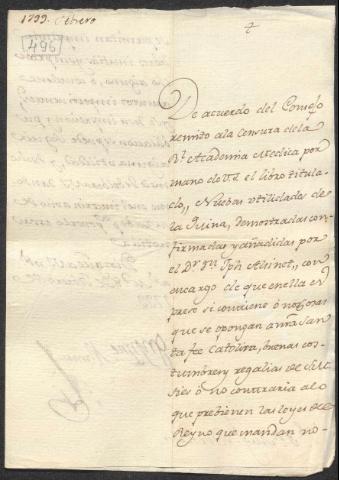 1799. Febrero
496
De acuerdo del Consejo
remito a la censura de la
Rl. Academia Medica por
mano de V.S. el libro titula-
do,, Nuebas utilidades de
la Quina, demostradas con-
firmadas y añadidas por
el Dr. Dn. Jph Alsinet,, con
encargo de que en ella ex-
prese si contiene ó no cosas
que se opongan a nra San-
ta fee Catolica, buenas cos-
tumbres y regalias de S.M.
si es ó no contraria a lo
que prebienen las leyes del
Reyno que mandan no-